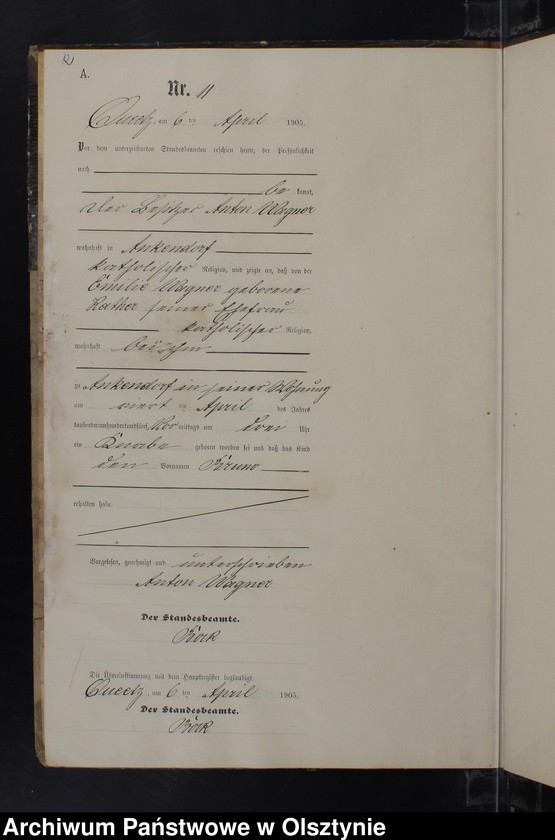 12
A.
Nr. 11
Queetz, am 6 ten April 1905.
Vor dem unterzeichneten Standesbeamten erschien heute, der Persönlichkeit
nach
be kannt,
der Besitzer Anton Wagner
wohnhaft in Ankendorf
katholischer Religion, und zeigte an, daß von der
Emilie Wagner geborene
seiner Ehefrau
katholischer Religion,
wohnhaft bei ihm
zu Ankendorf in seiner Wohnung
am viert en April des Jahres
tausendneunhundertundfünf, Vor mittags um drei Uhr
ein Knabe geboren worden sei und daß das Kind
den Vornamen Bruno
erhalten habe.
Vorgelesen, genehmigt und unterschrieben
Anton Wagner
Der Standesbeamte.
Die Übereinstimmung mit dem Hauptregister beglaubigt.
Queetz, am 6 ten April 1905.
Der Standesbeamte.
Archiwum Państwowe w Olsztynie